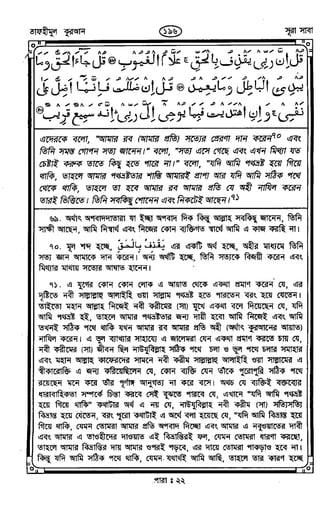 তাফহীমুল কুরআন
১৯৬
সূরা সাবা
قُلْ إِنَّ رَبِّي يَقْذِفُ بِالْحَقِّ ۚ عَلَّامُ الْغُيُوبِ ۝ قُلْ جَاءَ الْحَقُّ وَمَا
يُبْدِئُ الْبَاطِلُ وَمَا يُعِيدُ ۝ قُلْ إِنْ ضَلَلْتُ فَإِنَّمَا أَضِلُّ عَلَىٰ
نَفْسِي ۚ وَإِنِ اهْتَدَيْتُ فَبِمَا يُوحِي إِلَيَّ رَبِّي ۚ إِنَّهُ سَمِيعٌ قَرِيبٌ ۝
এদেরকে বলো, “আমার রব (আমার প্রতি) সত্যের প্রেরণা দান করেন৭০ এবং
তিনি সমস্ত গোপন সত্য জানেন।” বলো, “সত্য এসে গেছে এবং এখন মিথ্যা যত
চেষ্টাই করুক তাতে কিছু হতে পারে না।” বলো, “যদি আমি পথভ্রষ্ট হয়ে গিয়ে
থাকি, তাহলে আমার পথভ্রষ্টতার শাস্তি আমারই প্রাপ্য আর যদি আমি সঠিক পথে
থেকে থাকি, তাহলে তা হবে আমার রব আমার প্রতি যে অহী নাযিল করেন
তারই ভিত্তিতে। তিনি সবকিছু শোনেন এবং নিকটেই আছেন।”৭১
৬৯. অর্থাৎ অপবাদদাতারা যা ইচ্ছা অপবাদ দিক কিন্তু আল্লাহ সবকিছু জানেন, তিনি
সাক্ষী আছেন, আমি নিস্বার্থ এবং নিজের কোন ব্যক্তিগত স্বার্থে আমি এ কাজ করছি না।
৭০. মূল শব্দ হচ্ছে, يَقْذِفُ بِالْحَقِّ এর একটি অর্থ হচ্ছে, অহীর মাধ্যমে তিনি
সত্য জ্ঞান আমাকে দান করেন। অন্য অর্থটি হচ্ছে, তিনি সত্যকে বিজয়ী করেন এবং
মিথ্যার মাথায় সত্যের আঘাত হানেন।
৭১. এ যুগের কোন কোন লোক এ আয়াত থেকে একথা প্রমাণ করেন যে, এর
দৃষ্টিতে নবী সাল্লাল্লাহু আলাইহি ওয়া সাল্লাম পথভ্রষ্ট হতে পারতেন বরং হয়ে যেতেন।
তাইতো মহান আল্লাহ নিজেই নবী করীমের (সা) মুখে একথা বলে দিয়েছেন যে, যদি
আমি পথভ্রষ্ট হই, তাহলে আমার পথভ্রষ্টতার জন্য দায়ী হবো আমি নিজেই এবং আমি
তখনই সঠিক পথে থাকি যখন আমার রব আমার প্রতি অহী (অর্থাৎ কুরআনের আয়াত)
নাযিল করেন। এ ভুল ব্যাখ্যার সাহায্যে এ জালেমরা যেন একথা প্রমাণ করতে চায় যে,
নবী করীমের (সা) জীবন ছিল নাউযুবিল্লাহ সঠিক পথে চলা ও ভুল পথে চলার সমাহার
এবং মহান আল্লাহ কাফেরদের সামনে নবী করীম সাল্লাল্লাহু আলাইহি ওয়া সাল্লামের এ
স্বীকারোক্তি এ জন্য করিয়েছিলেন যে, কোন ব্যক্তি যেন তাঁকে পুরোপুরি সঠিক পথে
রয়েছেন মনে করে তাঁর পূর্ণাঙ্গ আনুগত্য না করে বসে। অথচ যে ব্যক্তিই বক্তব্যের
ধারাবাহিকতা সম্পর্কে চিন্তা করবে সেই বুঝতে পারবে যে, এখানে “যদি আমি পথভ্রষ্ট
হয়ে গিয়ে থাকি” কথাটার অর্থ এ নয় যে, নাউযুবিল্লাহ নবী করীম (সা) সত্যিসত্যি
বিভ্রান্ত হয়ে যেতেন, বরং পুরো কথাটাই এ অর্থে বলা হয়েছে যে, “যদি আমি বিভ্রান্ত হয়ে
গিয়ে থাকি, যেমন তোমরা আমার প্রতি অপবাদ দিচ্ছো এবং আমার এ নবুওয়াতের দাবী
এবং আমার এ তাওহীদের দাওয়াত এই বিভ্রান্তিরই ফল, যেমন তোমরা ধারণা করছো,
তাহলে আমার বিভ্রান্তির দায় আমার ওপরই পড়বে, এর দায়ে তোমরা পাকড়াও হবে না।
কিন্তু যদি আমি সঠিক পথে থাকি, যেমন যথার্থই আমি আছি, তাহলে তার কারণ হচ্ছে
পারা : ২২